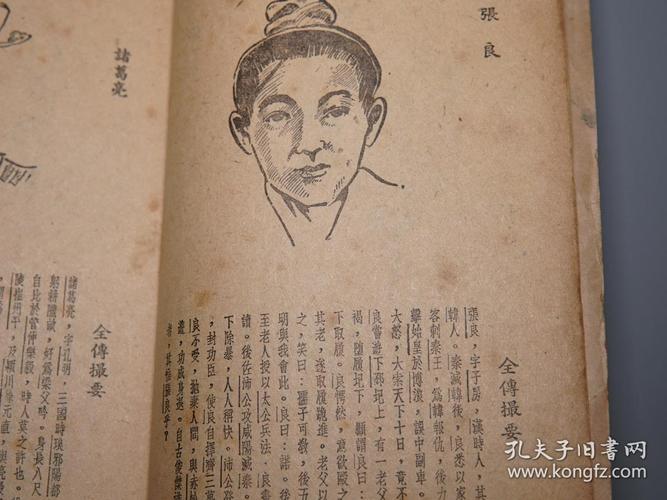 張良
全傳撮要
張良,字子房,漢時人,其
韓人。秦滅韓後,良悉以家
客刺秦王,爲韓報仇,後力
擊始皇於博浪,誤中副車。
大怒,大索天下十日,竟不
良嘗遊下邳圯上,有一老父
褐,墮履圯下,顧謂良曰:
下取履。良愕然,意欲毆之
其老,遂取履跪進。老父以
之,笑曰:孺子可敎,後五
明與我會此。良曰:諾。後
至老人授以太公兵法,良
讀。後佐沛公攻咸陽滅秦
下除暴,人人稱快。沛公
,封功臣,使良自擇齊三萬
良不受,抛棄人間,與赤松
遊,功成身退。自古俊傑
者,其惟張良乎?
諸葛亮
全傳撮要
諸葛亮,字孔明,三國時瑯琊陽都
躬耕隴畝,好爲梁父吟。身長八尺
自比於管仲樂毅,時人莫之許也。
陵崔州平,及潁川徐元直,與亮
孔夫子旧书网